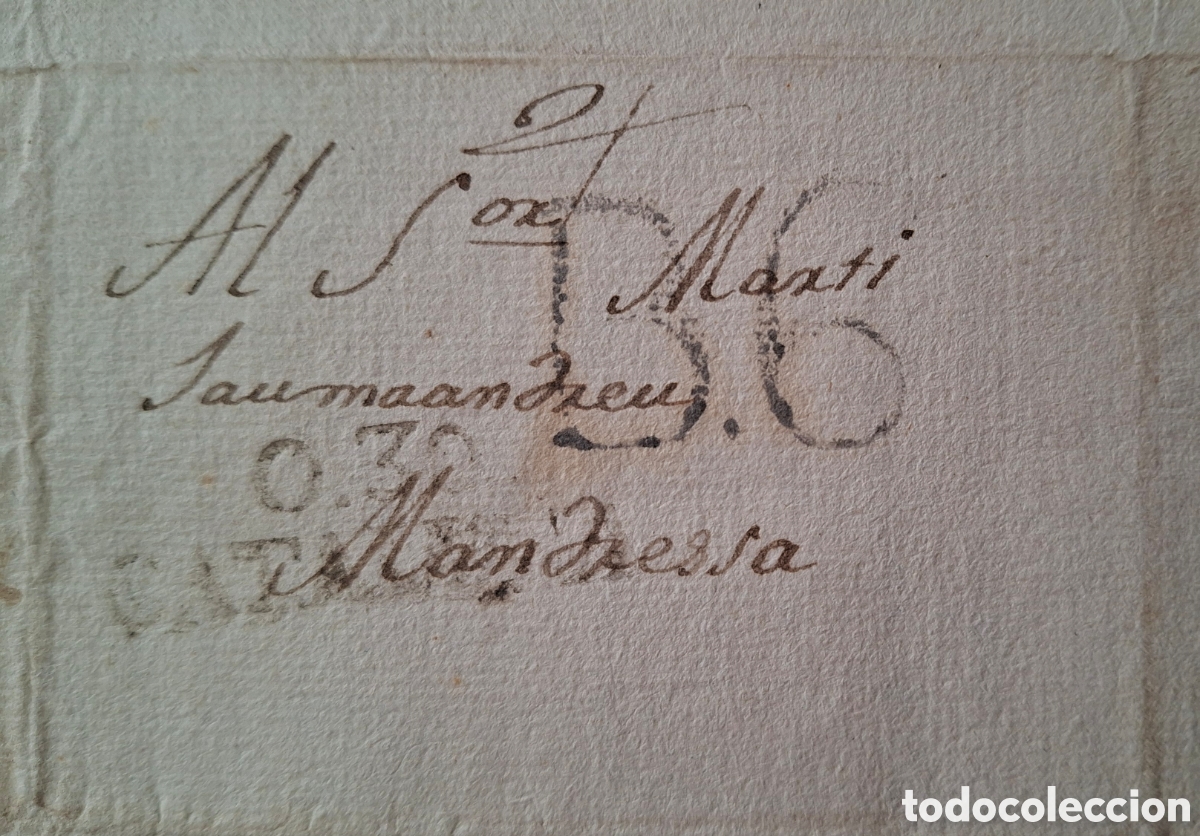 Al Sor Marti
B.6
Jaumaandreu
O.32
Mandressa
todocoleccion